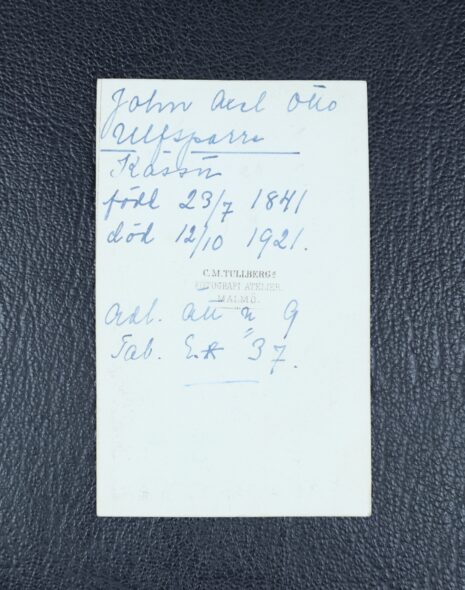 John Axel Otto
Ulfsparre
Kassör
född 23/7 1841
död 12/10 1921.
C. M. TULLBERGS
FOTOGRAFI ATELIER.
MALMÖ.
Adl. ätt n 9
Tab. 37.